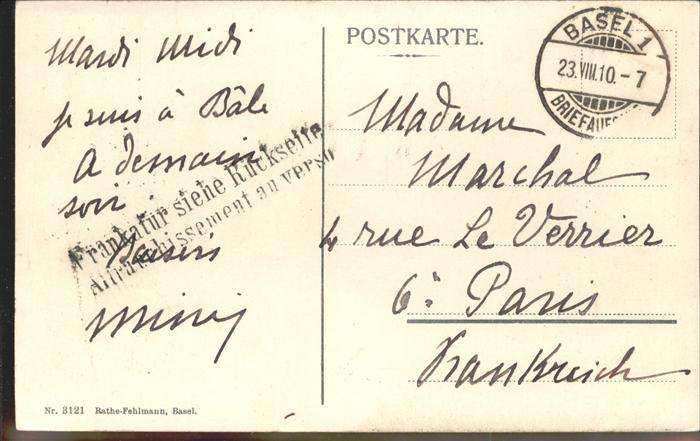 Mardi Midi
je suis à Bâle
A demain
soir.
Baisers
POSTKARTE.
BASEL 1
23.VIII.10.-7
Frankatur siehe Rückseite
Affranchissement au verso
Madame
Marchal
4 rue Le Verrier
6e Paris
Frankreich
Nr. 3121 Rathe-Fehlmann, Basel.